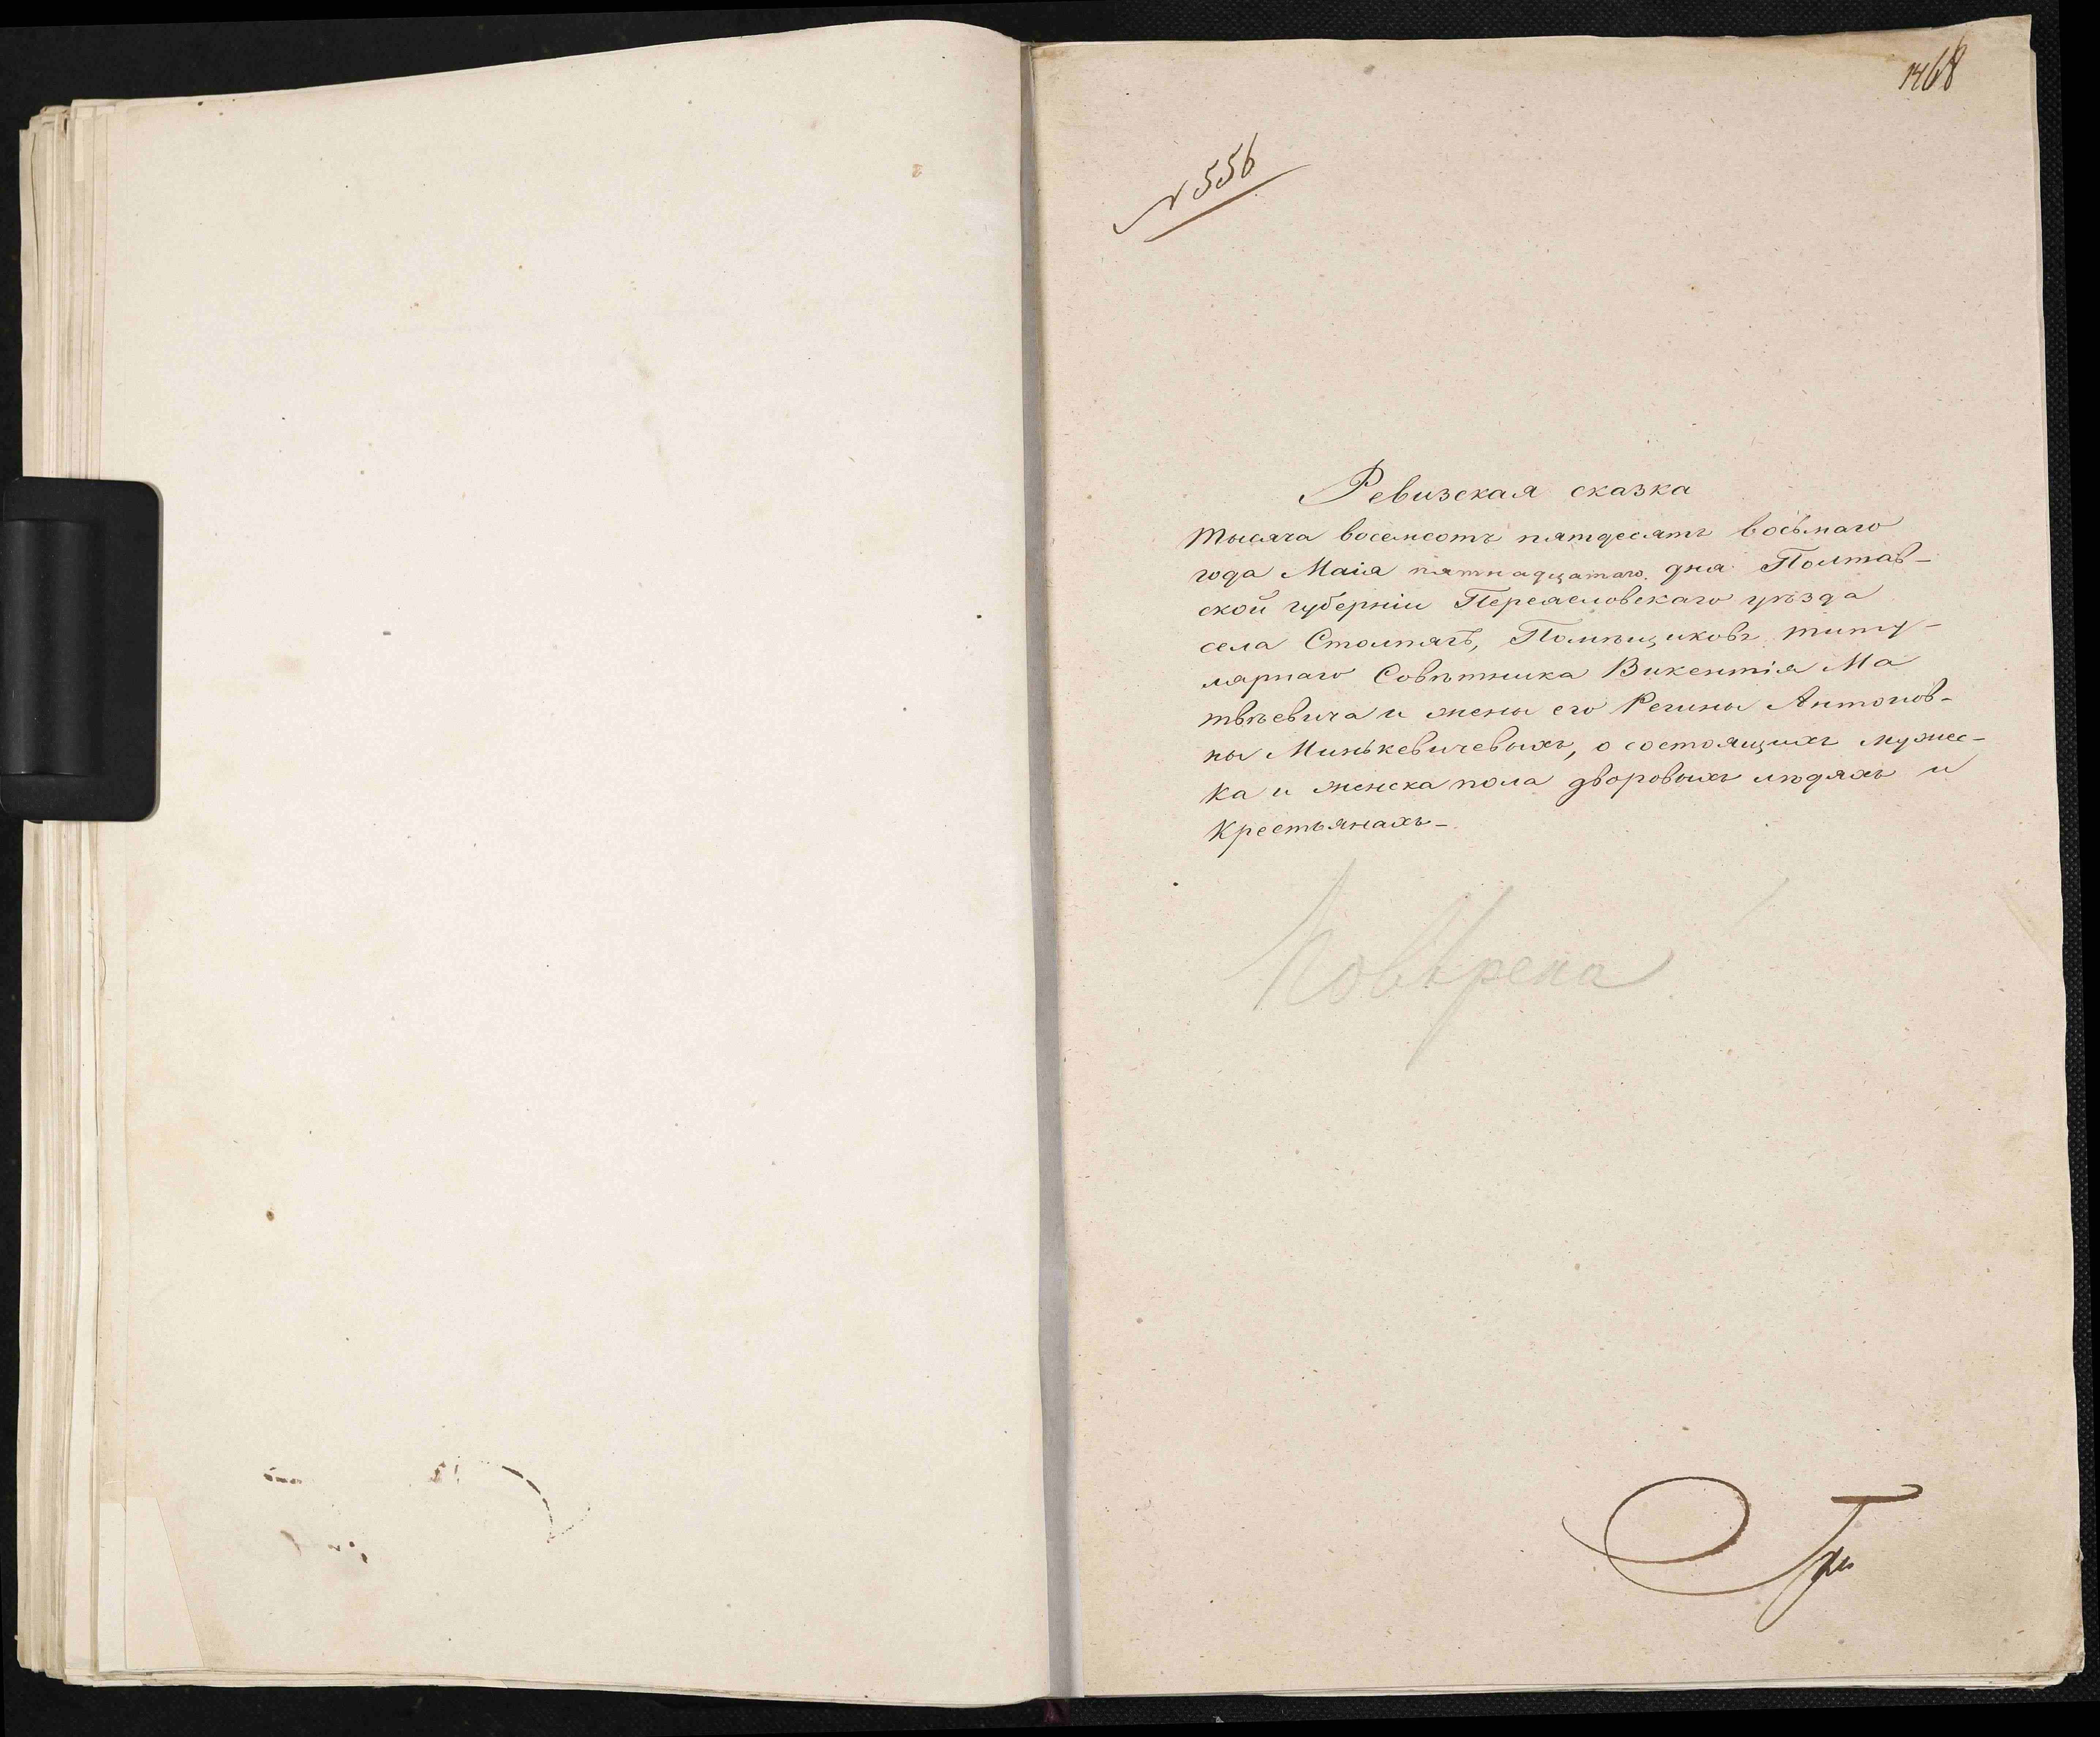 1468
№ 556
Ревизская сказка
тысяча восемсотъ пятдесятъ восьмаго
года Маія пятнадцатаго дня Полтав-
ской губерніи Переясловскаго уѣзда
села Столпягъ, Помѣщиковъ титу-
лярнаго Совѣтника Викентія Ма
твѣевича и жены его Регины Антонов-
ны Минькевичевыхъ, о состоящихъ мужес-
ка и женска пола дворовыхъ людяхъ и
крестьянахъ-
Повѣрена